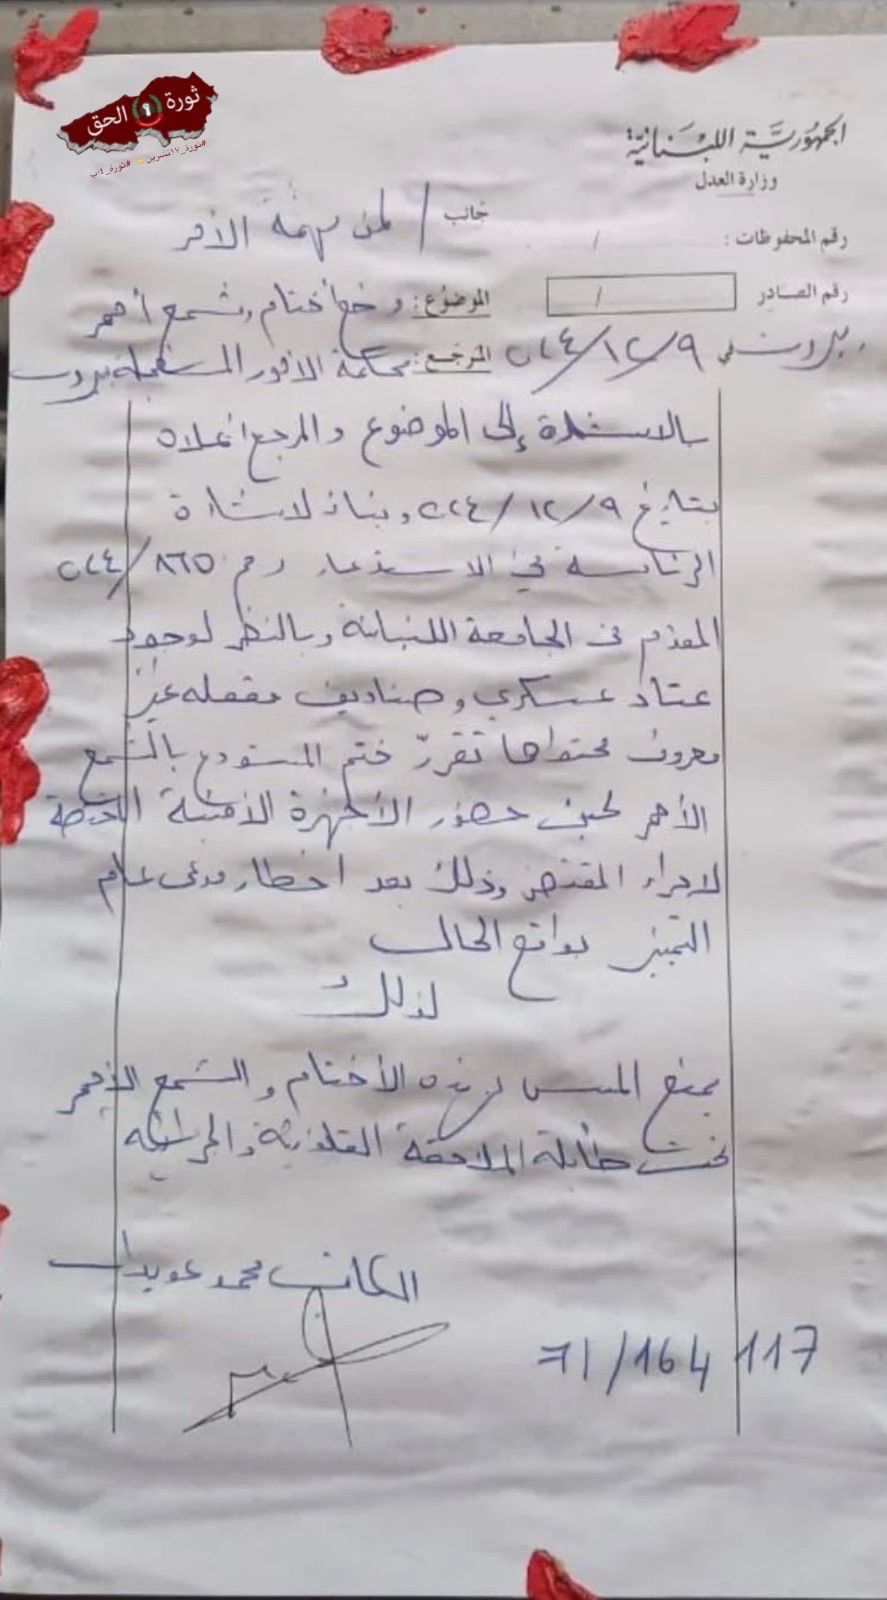 ثورة الحق
#ثورة_١٧تشرين #ثورة_٤اب
الجمهورية اللبنانية
وزارة العدل
جانب / لمن يهمه الأمر
رقم المحفوظات : /
رقم الصادر /
الموضوع: وضع أختام وشمع أحمر
بيروت في ٩/١٢/٢٠٢٤
المرجع: محكمة الأمور المستعجلة بيروت
بالاشارة إلى الموضوع والمرجع أعلاه
بتاريخ ٩/١٢/٢٠٢٤ وبناء لاشارة
الرئاسة في الاستدعاء رقم ٨٦٥/٢٠٢٤
المقدم من الجامعة اللبنانية وبالنظر لوجود
عتاد عسكري وصناديق مقفلة غير
معروف محتواها تقرر ختم المستودع بالشمع
الأحمر لحين حضور الأجهزة الأمنية المختصة
لاجراء المقتضى وذلك بعد اخطار مدعي عام
التمييز بواقع الحال
لذلك
يمنع المس بهذه الأختام والشمع الأحمر
تحت طائلة الملاحقة القانونية والجزائية
الكاتب محمد عويدات
71/164 117